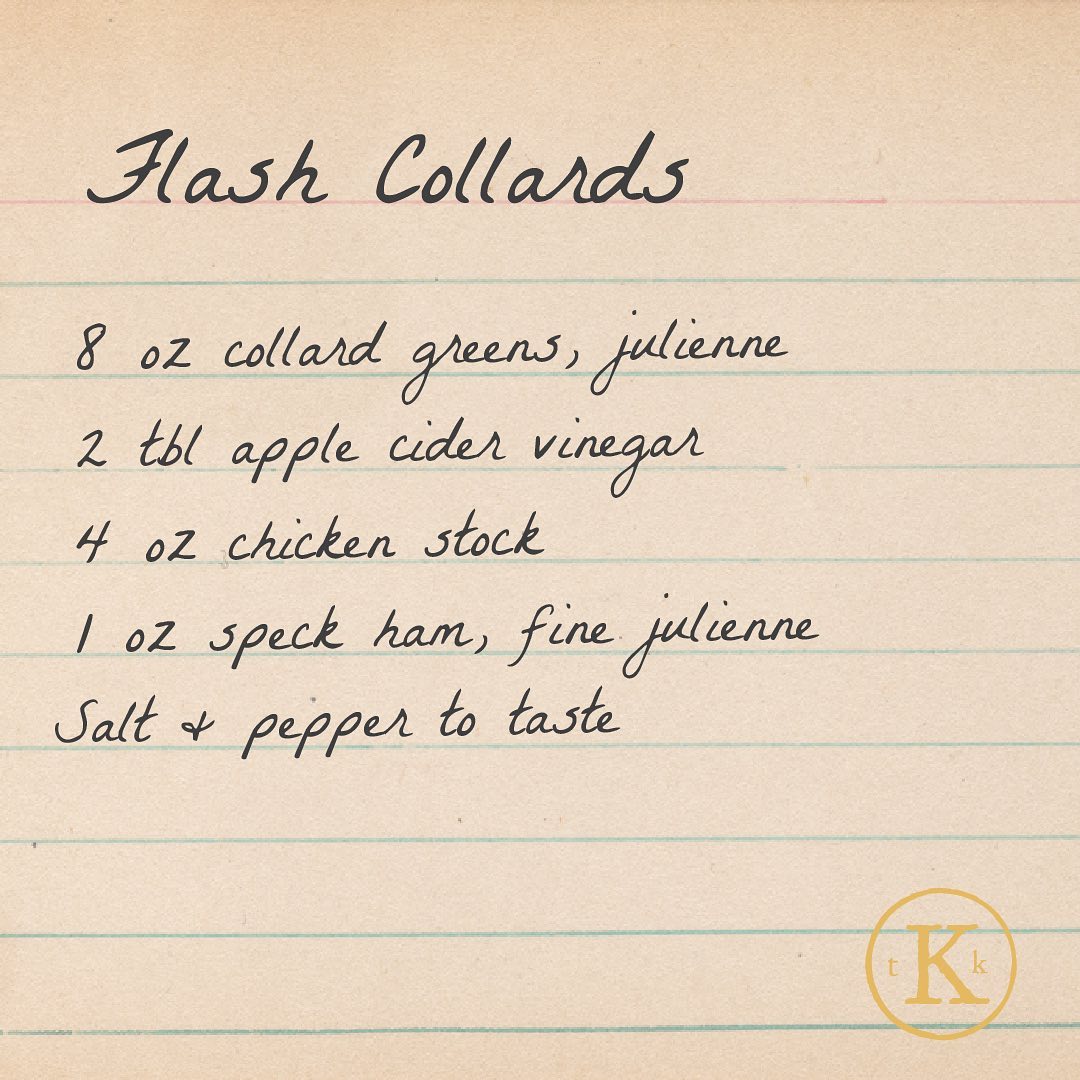 Flash Collards
8 oz collard greens, julienne
2 tbl apple cider vinegar
4 oz chicken stock
1 oz speck ham, fine julienne
Salt & pepper to taste
t K k